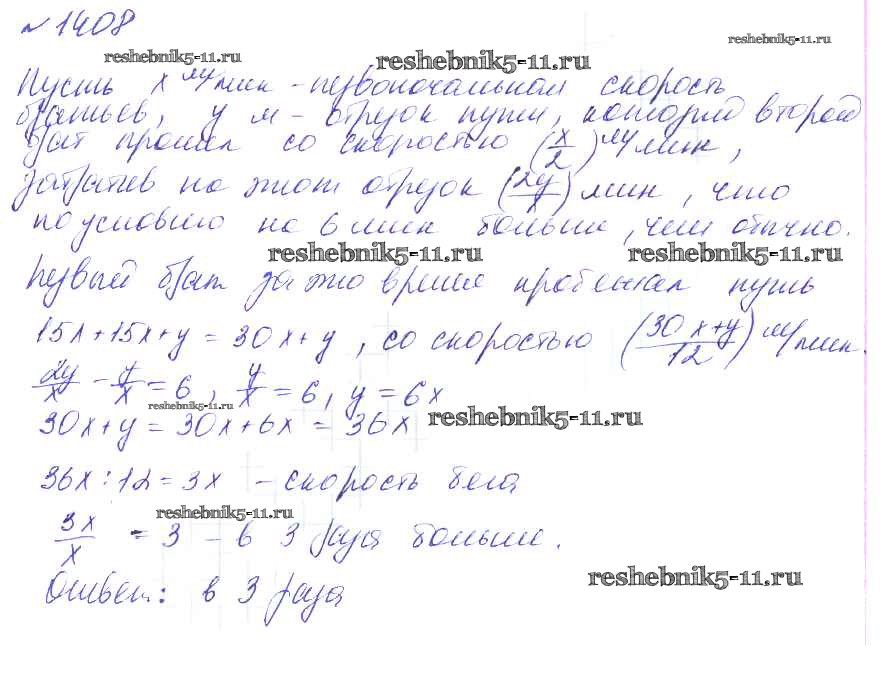 № 1408
reshebnik5-11.ru reshebnik5-11.ru reshebnik5-11.ru
Пусть x м/мин - первоначальная скорость
братьев, y м - отрезок пути, который второй
брат прошел со скоростью (x/2) м/мин,
затратив на этот отрезок (2y/x) мин, что
по условию на 6 мин больше, чем обычно.
reshebnik5-11.ru reshebnik5-11.ru
Первый брат за это время пробежал путь
15x + 15x + y = 30x + y, со скоростью (30x+y/12) м/мин.
2y/x - y/x = 6, y/x = 6, y = 6x
reshebnik5-11.ru reshebnik5-11.ru
30x + y = 30x + 6x = 36x
36x : 12 = 3x - скорость бега
reshebnik5-11.ru
3x/x = 3 - в 3 раза больше.
reshebnik5-11.ru
Ответ: в 3 раза